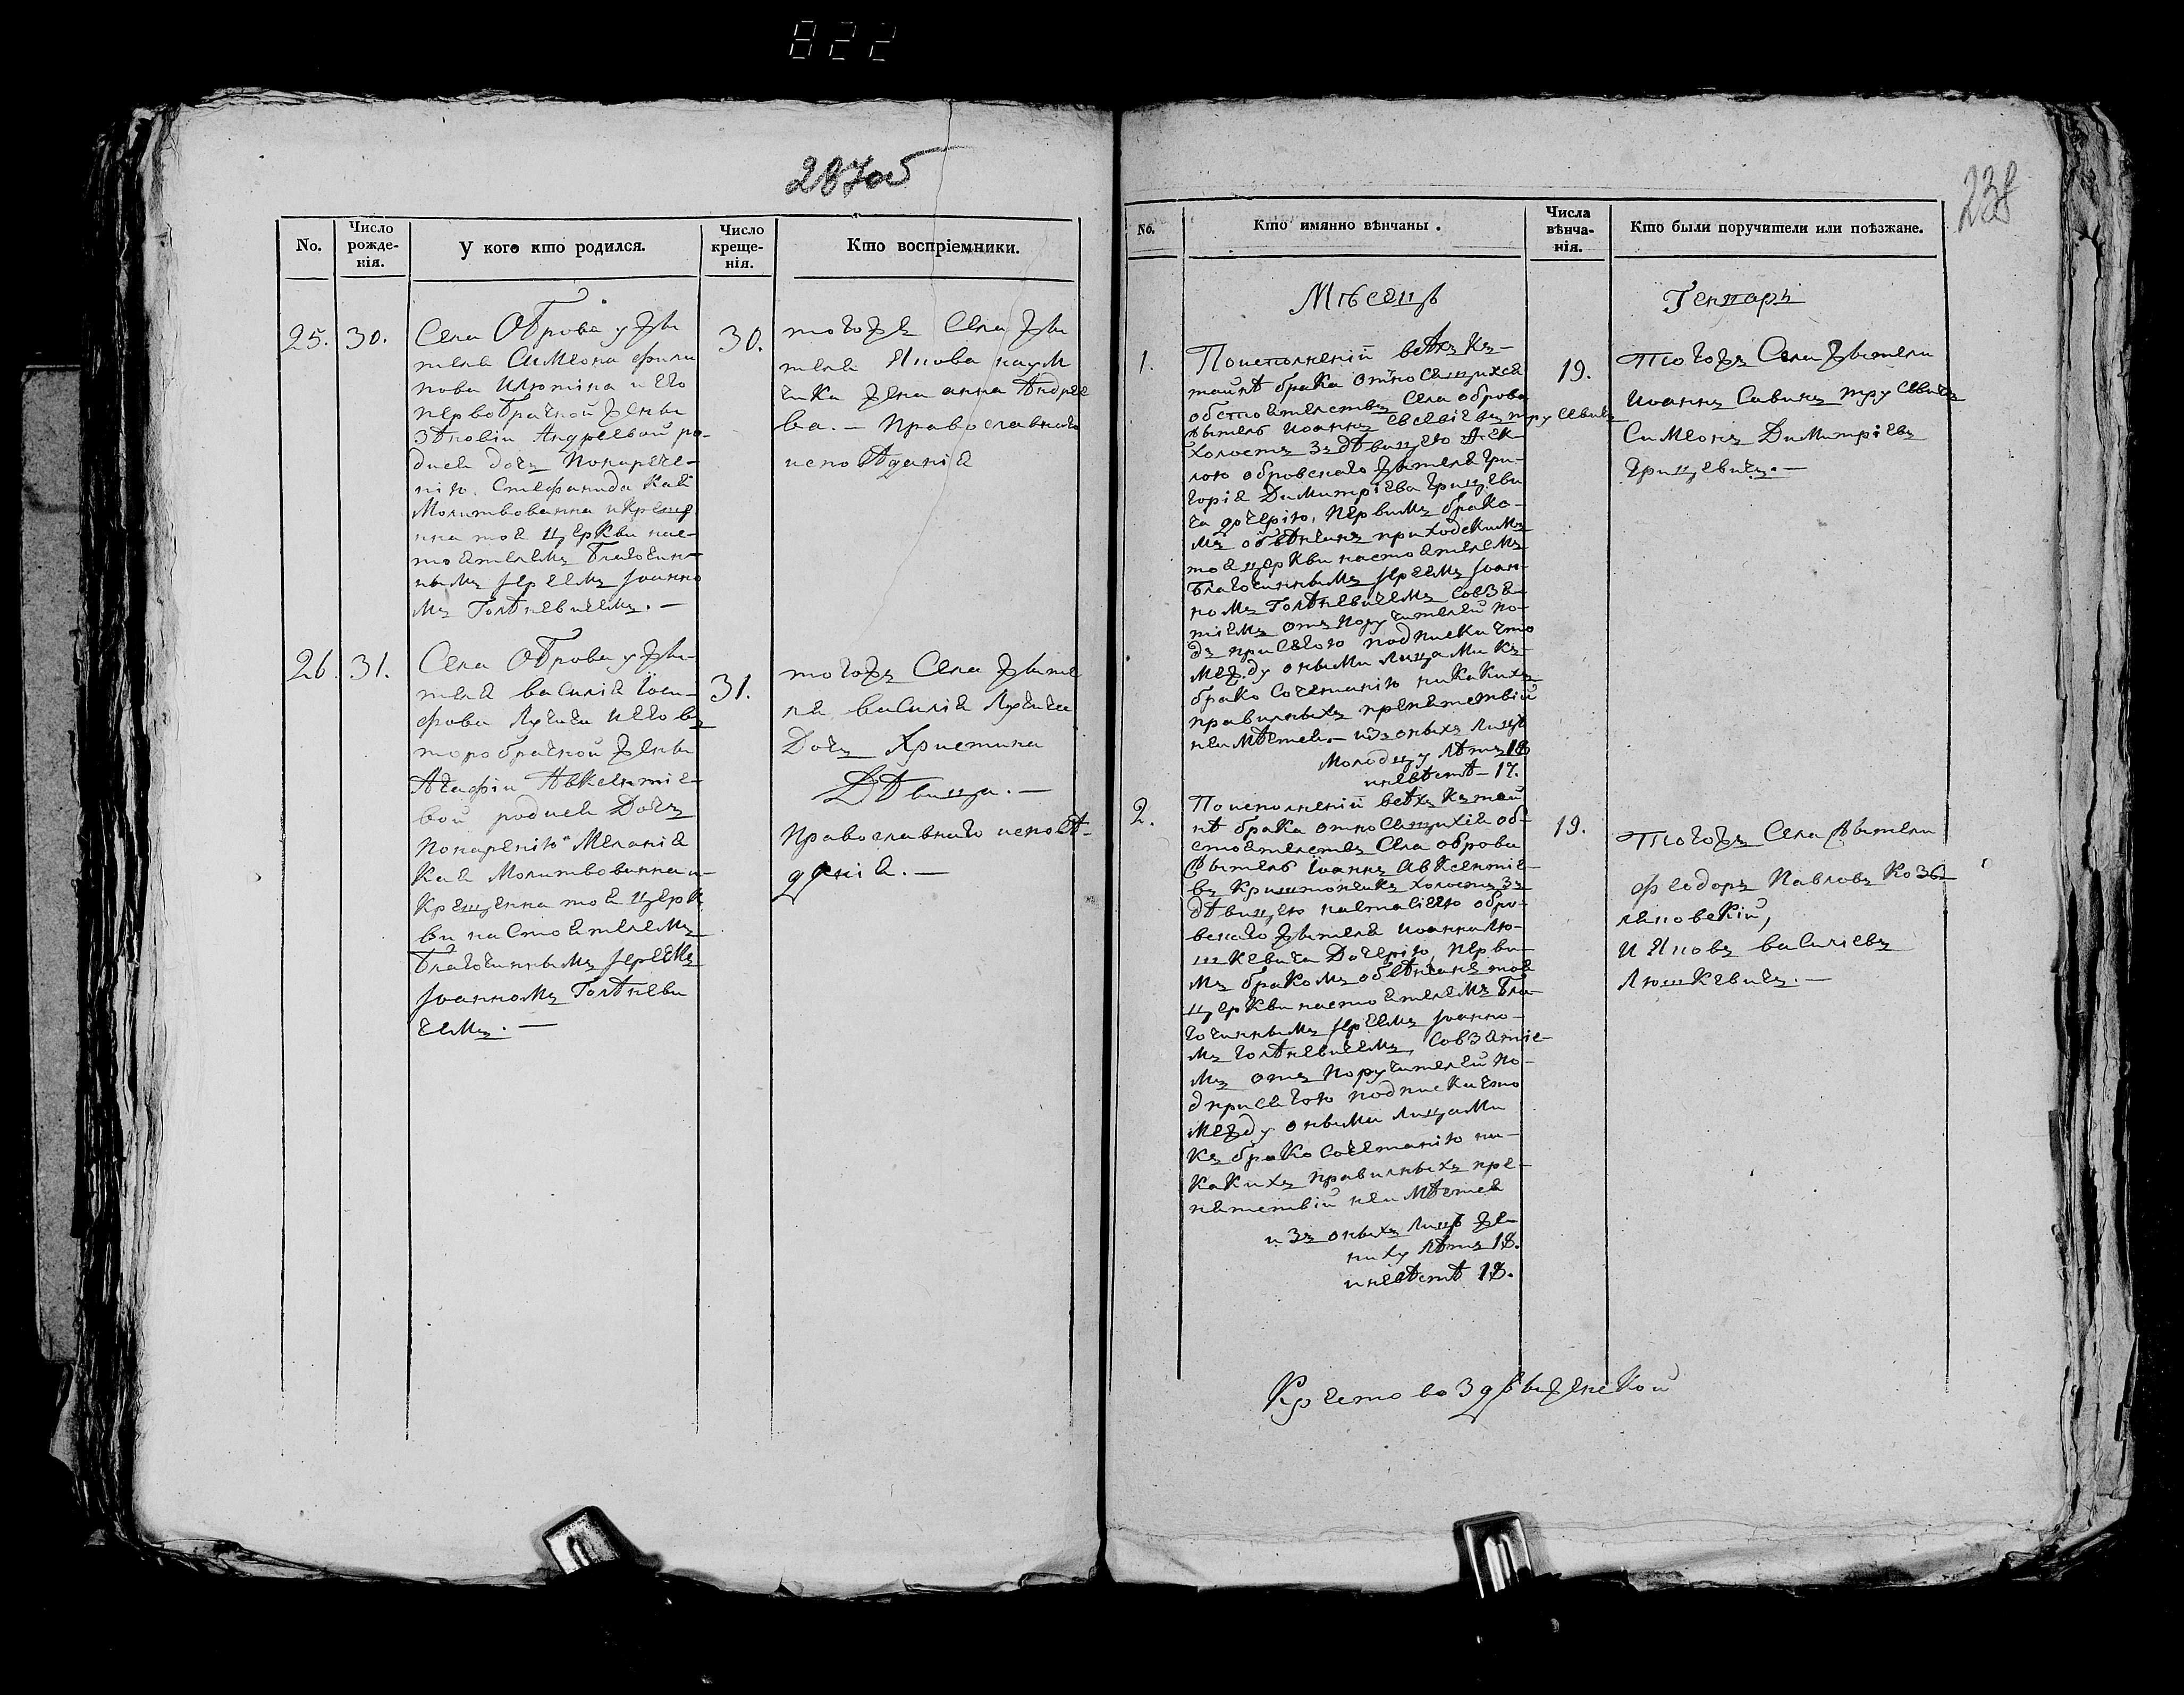 822
287об
No.
Число рожде-нія.
У кого кто родился.
Число креще-нія.
Кто воспріемники.
25.
30.
Села Оброва у жи
теля Симеона Фили
пова Илютика и его
первобрачной жены
Зѣновіи Андреевой ро-
дися дочь Понарече-
нію Стефанида Кая
Молитвованна и креще
нна тоя церкви нас-
тоятелемъ Благочин-
нымъ Іереемъ Іоанно
мъ Голѣневичемъ. —
30.
тогожъ Села жи
теля Якова наум
чика жена анна Андрее
ва. — Православнаго
исповѣданія
26
31.
Села Оброва у жи-
теля василія Іоси-
фова Лучица и его в
торобрачной жены
Агафіи Авксентіе-
вой родися Дочь
Понаренію Меланія
Кая Молитвованна и
Крещенна тоя церк
ви настоятелемъ
Благочиннымъ Іереемъ
Іоанномъ Голѣневи
чемъ. —
31.
тогожъ Села жите
ля василія
Дочь Христина
Дѣвица. —
Православнаго исповѣ-
данія. —
238
No.
Кто имянно вѣнчаны.
Числа вѣнча-нія.
Кто были поручители или поѣзжане.
Мѣсецъ
Генварь
1.
Поисполненій всѣхъ Къ-
таинѣ брака относящихся
обстоятелствъ Села оброва
житель Иоаннъ Евсевіевъ трусевичъ
холостъ Зъ дѣвицею
лою обровскаго жителя Гри-
горія Димитріева Грицеви
ча дочерію, первымъ брако-
мъ обвѣнчанъ приходскимъ
тоя церкви настоятелемъ
Благочиннымъ Іереемъ Іоан-
номъ Голѣневичемъ Совзя-
тіемъ отъ Поручителей по-
дъ присягою подписки что
между оными лицами Къ-
бракосочетанію никакихъ
правилныхъ препятствій
неимѣется. — изъ оныхъ лицъ
Молодцу лѣтъ 18
иневѣстѣ — 17.
19.
Тогожъ Села жители
Иоаннъ Савинъ трусевичъ
Симеонъ Димитріевъ
Грицевичъ. —
2.
Поисполненій всѣхъ Къ таи
нѣ брака относящихся об-
стоятелствъ Села оброва
житель Іоаннъ Авксентіе-
въ холостъ Зъ
дѣвицею настасіею обро-
вскаго жителя Иоанна Лю-
шкевича Дочерію, первы-
мъ бракомъ обвѣнчанъ тоя
церкви настоятелемъ Бла-
гочиннымъ Іереемъ Іоанно-
мъ Голѣневичемъ, Совзятіе-
мъ отъ Поручителей по-
дприсягою подписки что
между оными лицами
Къ бракосочетанію ни-
какихъ правилныхъ пре-
пятствій неимѣется
изъ оныхъ лицъ же-
ниху лѣтъ 18.
иневѣстѣ 18.
19.
Тогожъ Села жители
Феодоръ Павловъ Коз
ляковскій,
и Яковъ василіевъ
Люшкевичъ. —
Крестовоздвиженской